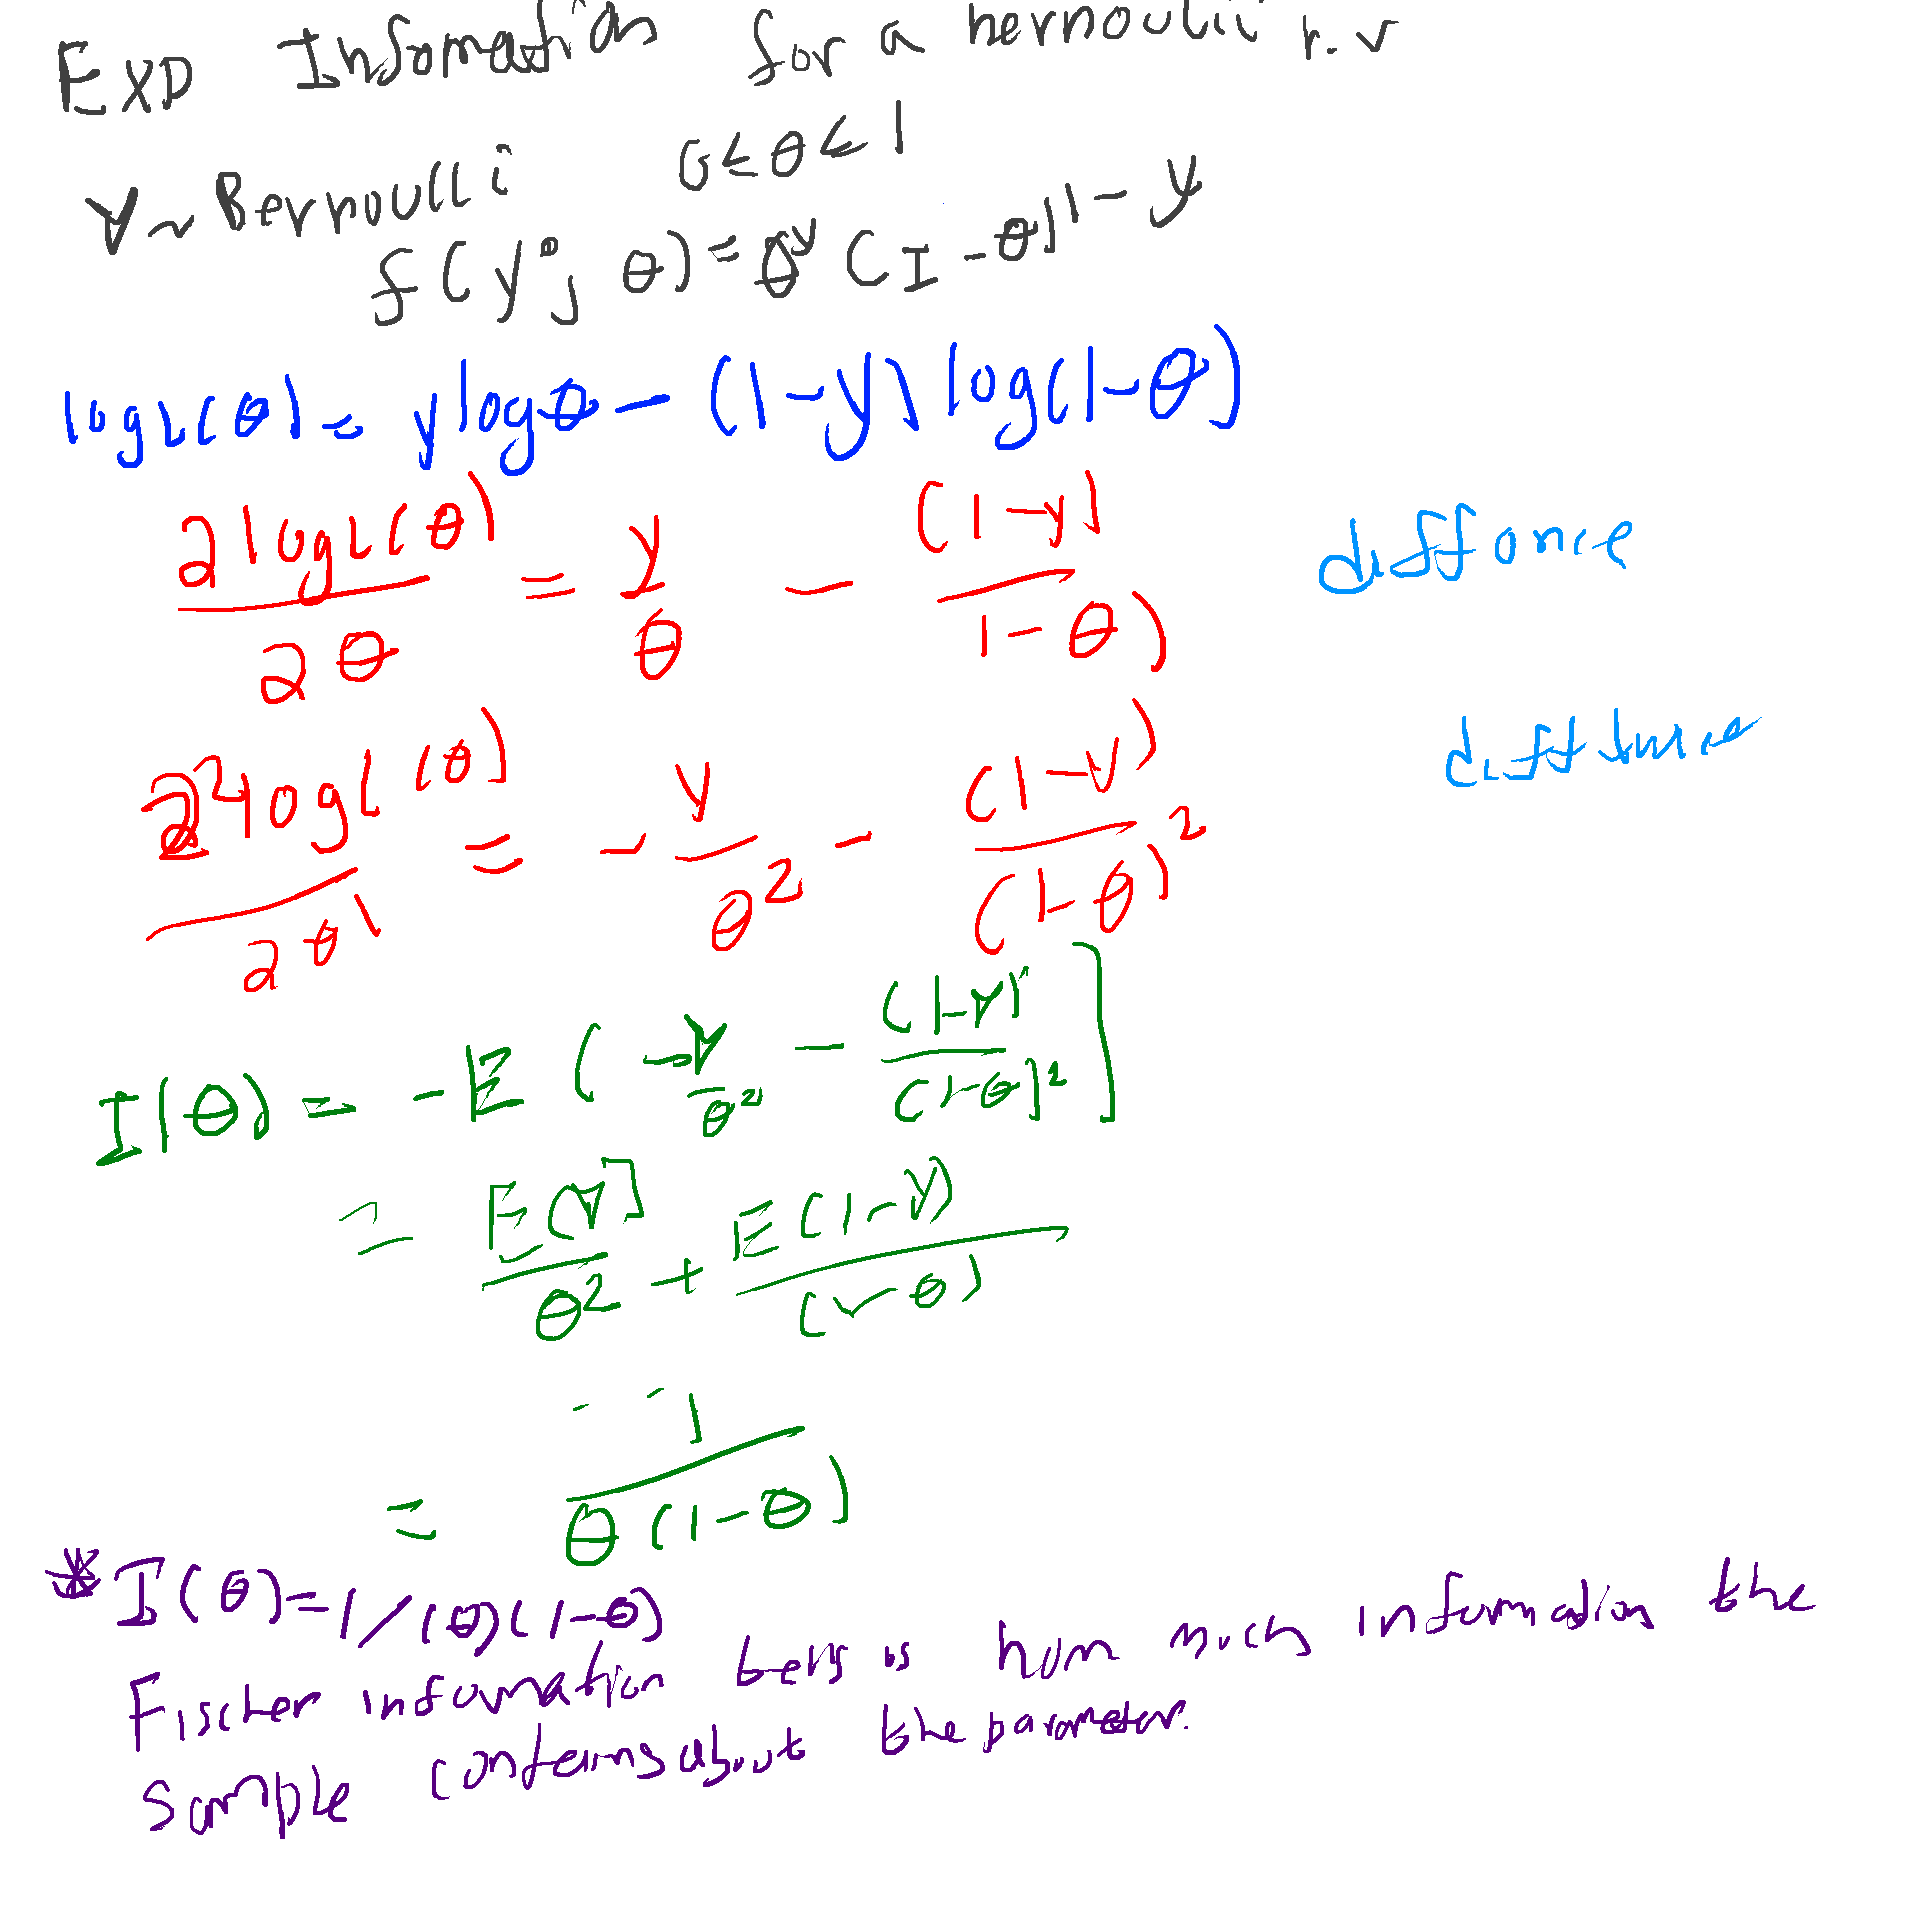 EXD Infomation for a bernoulli r.v
Y ~ Bernoulli 0 ≤ θ ≤ 1
f(y; θ) = θ^y (1 - θ)^1-y
log L(θ) = y log θ - (1-y) log(1-θ)
∂ log L(θ) / ∂θ = y/θ - (1-y)/(1-θ) diff once
∂² log L(θ) / ∂θ² = -y/θ² - (1-y)/(1-θ)² diff twice
I(θ) = -E(-Y/θ² - (1-Y)/(1-θ)²]
= E(Y]/θ² + E(1-Y)/(1-θ)
= 1/θ(1-θ)
* I(θ) = 1/(θ)(1-θ)
Fischer information tells us how much information the
sample contains about the parameter.